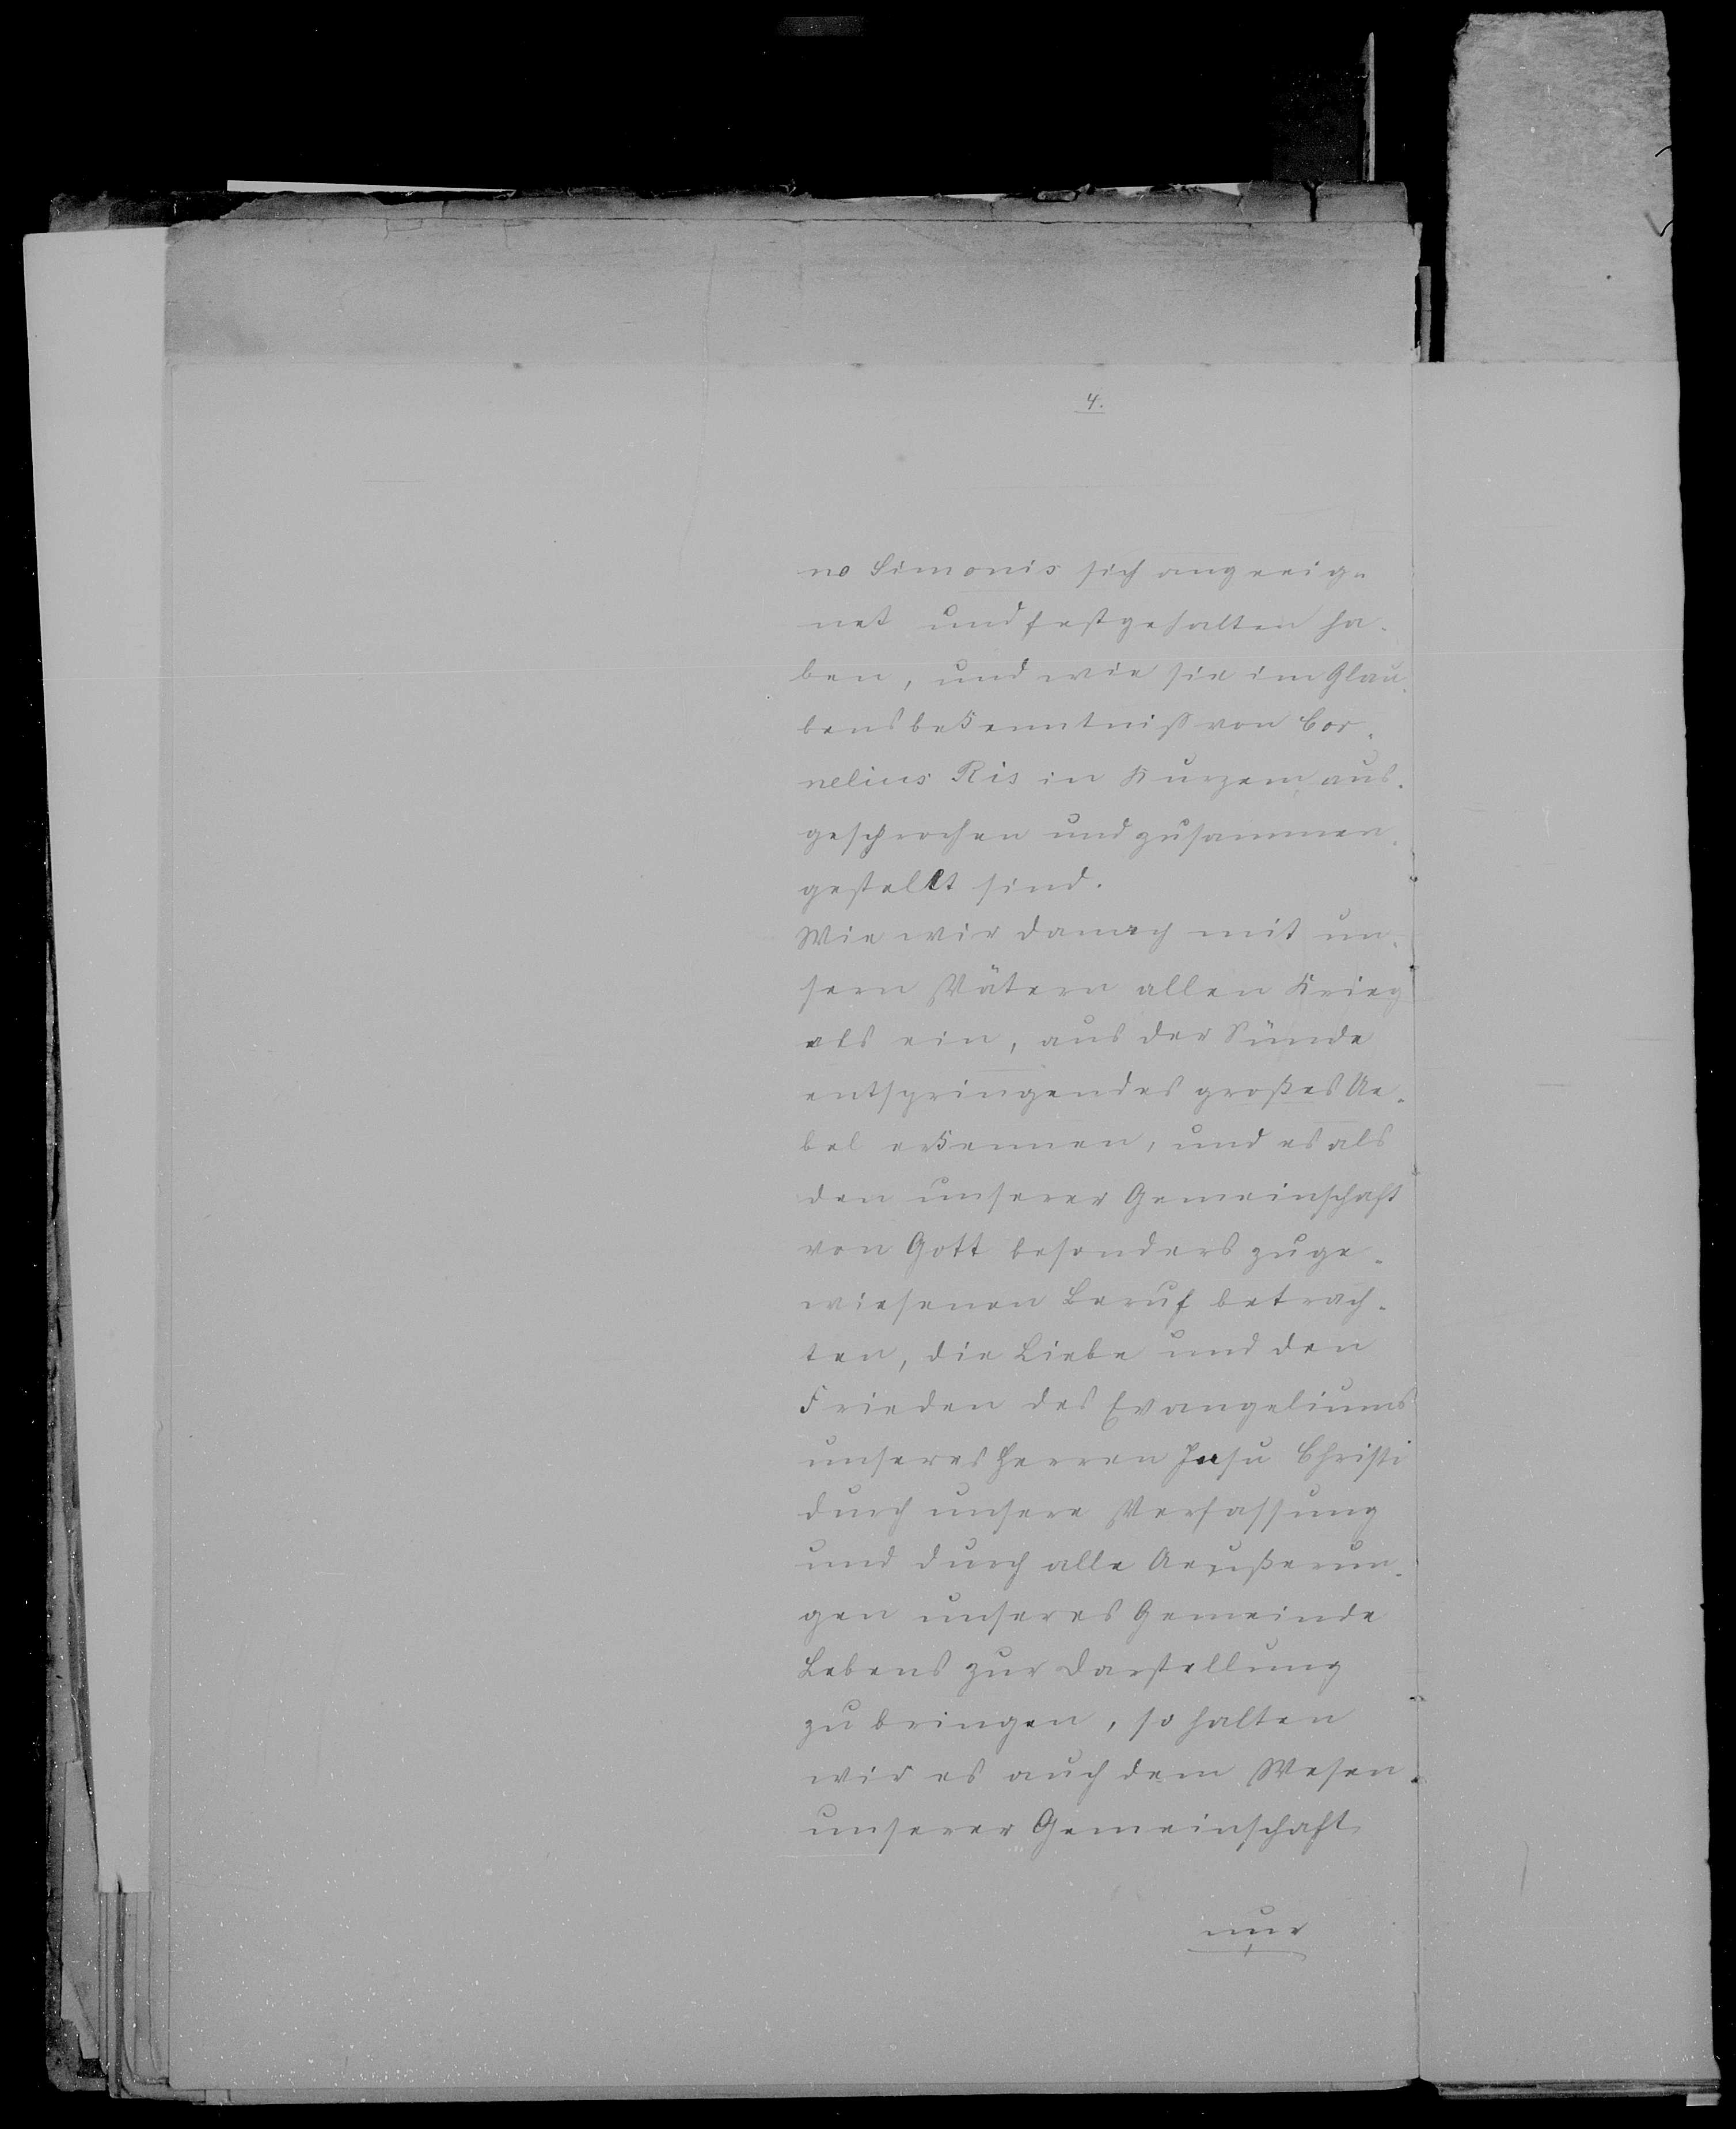 4.
no Simonis sich angeeig-
net und festgehalten ha-
ben, und wie sie im Glau-
bensbekenntniß von Cor-
nelius Ris in Kurzem aus-
gesprochen und zusammen-
gestellt sind.
Wie wir danach mit un-
sern Vätern allen Krieg
als ein, aus der Sünde
entspringendes großes Ue-
bel erkennen, und es als
den unserer Gemeinschaft
von Gott besonders zuge-
wiesenen Beruf betrach-
ten, die Liebe und den
Frieden des Evangeliums
unseres Herren Jesu Christi
durch unsere Verfassung
und durch alle Aeußerun-
gen unseres Gemeinde
Lebens zur Darstellung
zu bringen, so halten
wir es auch dem Wesen
unserer Gemeinschaft
nur